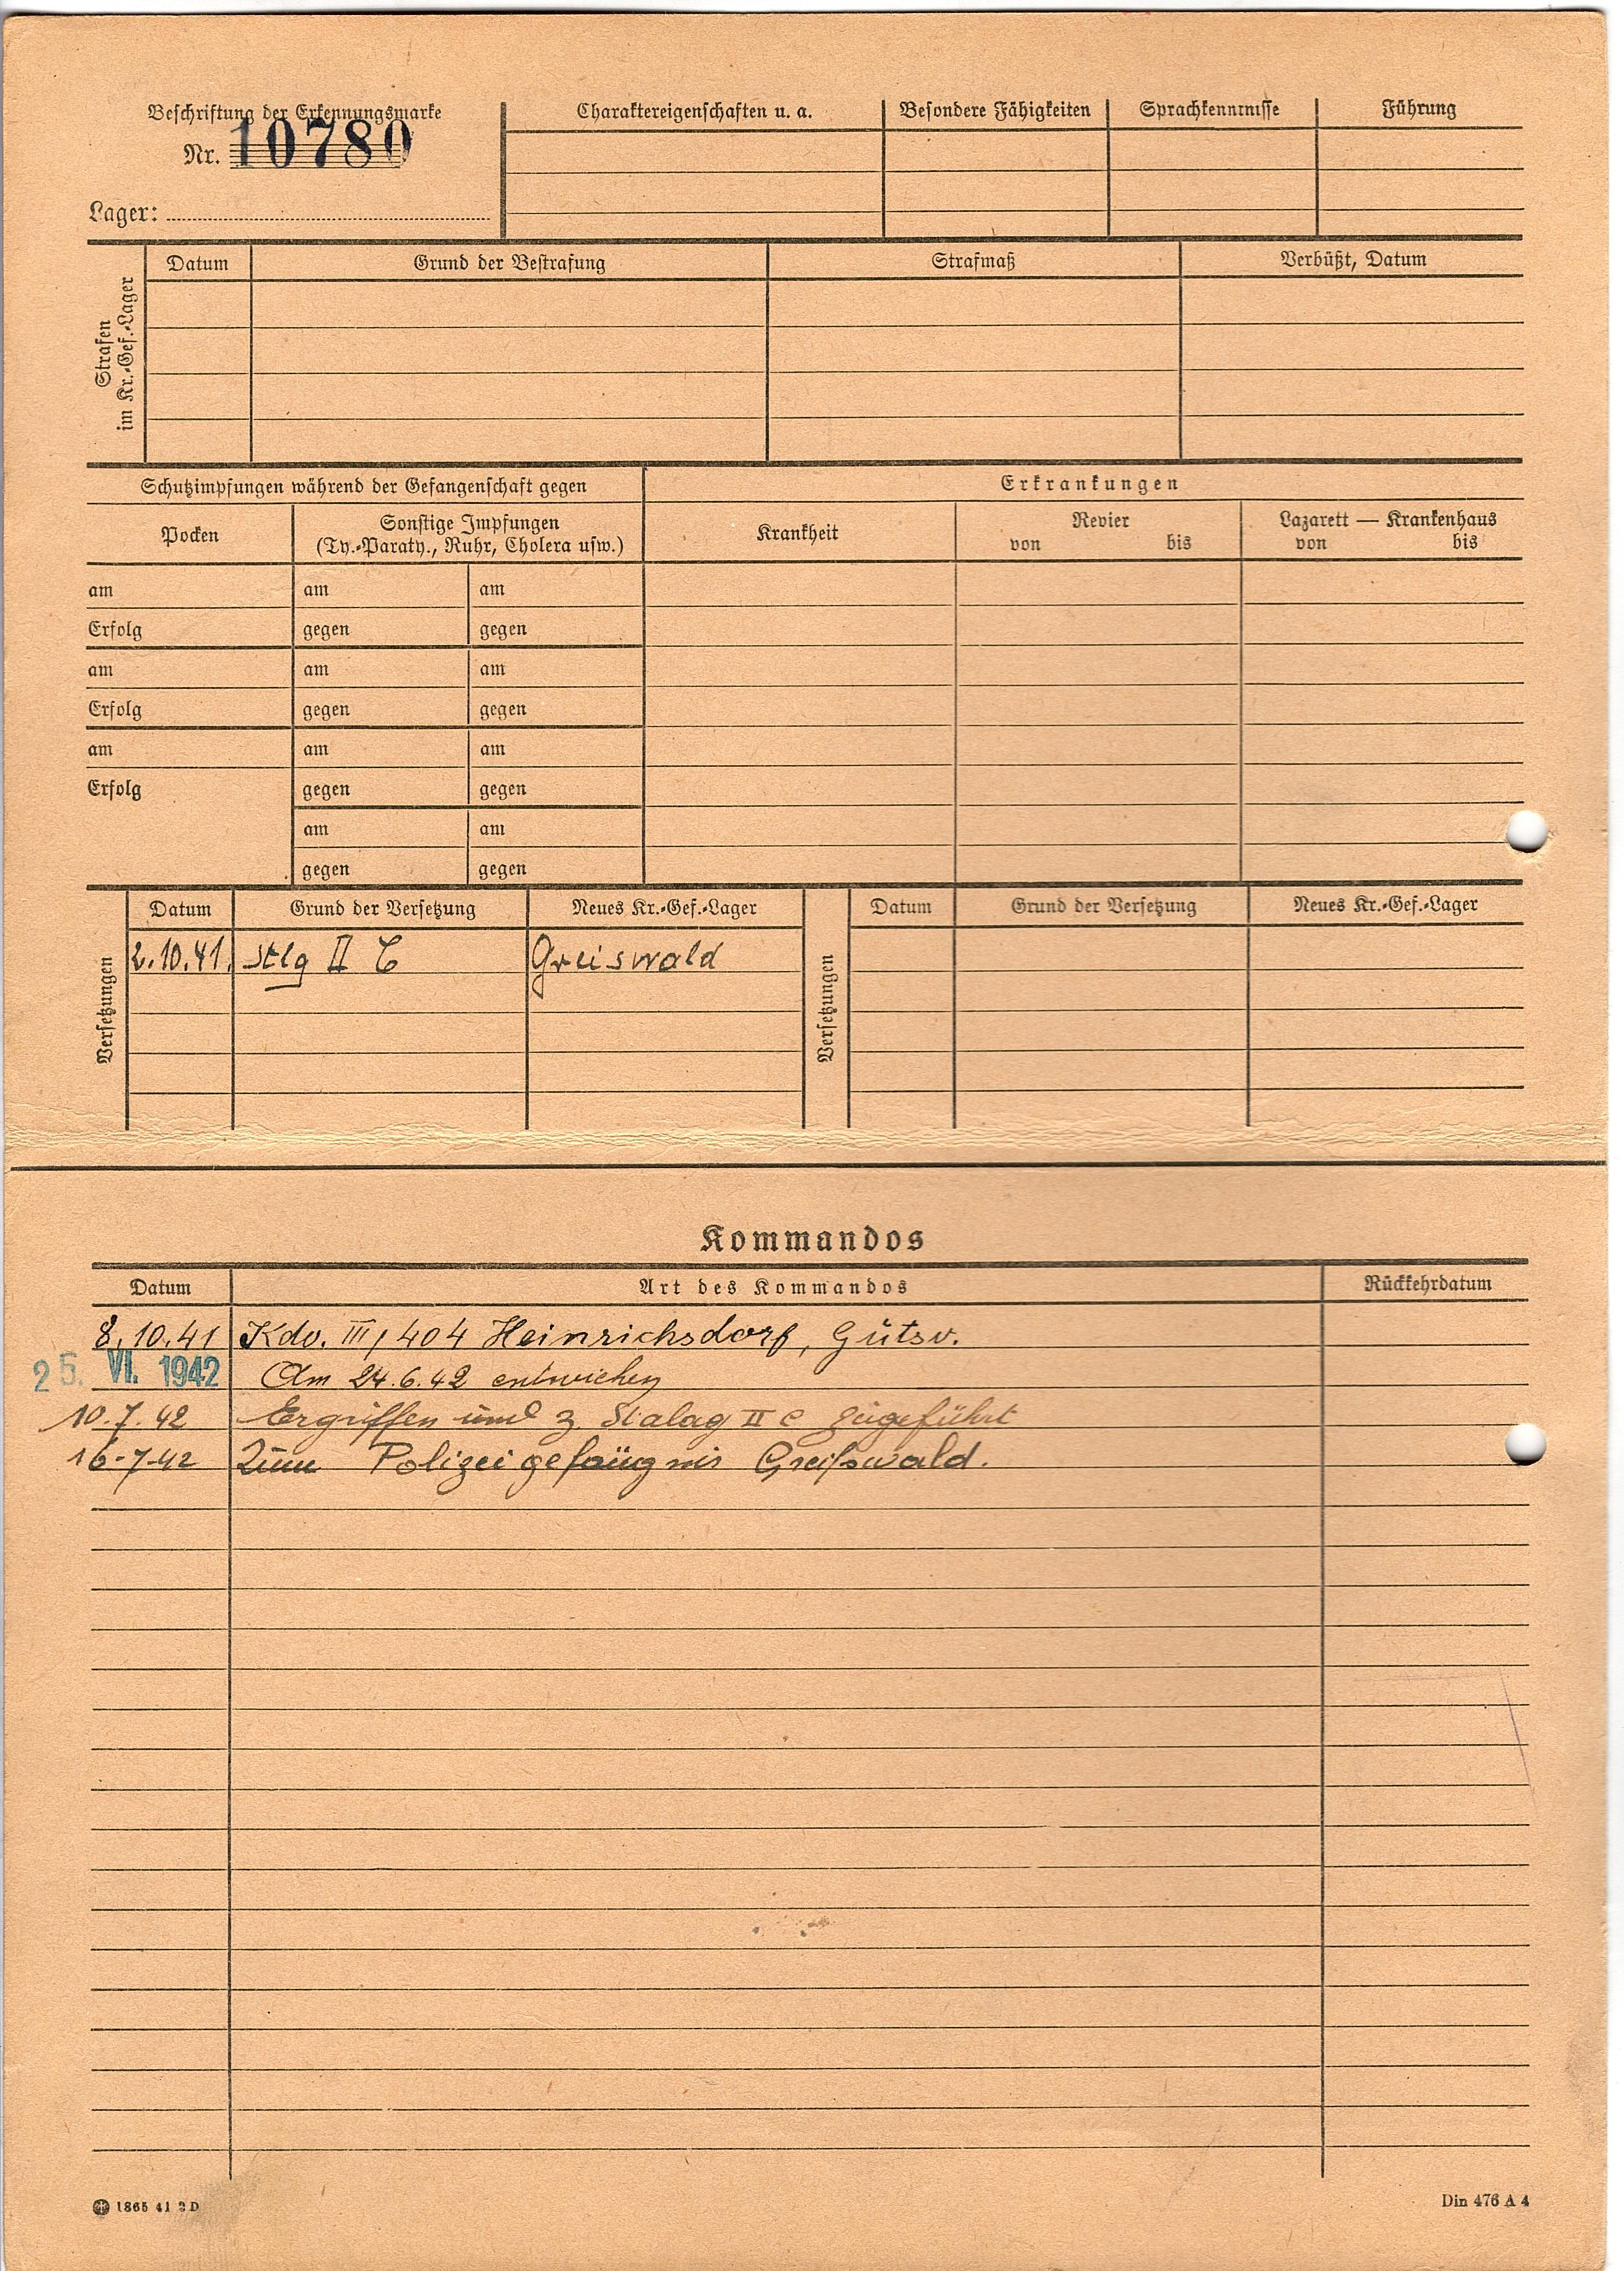 Beschriftung der Erkennungsmarke
Nr. 10780
Lager:
Charaktereigenschaften u. a. Besondere Fähigkeiten Sprachkenntnisse Führung
Strafen im Kr.-Gef.-Lager
Datum Grund der Bestrafung Strafmaß Verbüßt, Datum
Schutzimpfungen während der Gefangenschaft gegen Erkrankungen
Pocken Sonstige Impfungen Krankheit Revier Lazarett — Krankenhaus
(Ty.-Paraty., Ruhr, Cholera usw.) von bis von bis
am am am
Erfolg gegen gegen
am am am
Erfolg gegen gegen
am am am
Erfolg gegen gegen
am am
gegen gegen
Versetzungen
Datum Grund der Versetzung Neues Kr.-Gef.-Lager
2.10.41. Stlg II C Greiswald
Versetzungen
Datum Grund der Versetzung Neues Kr.-Gef.-Lager
Kommandos
Datum Art des Kommandos Rückkehrdatum
8.10.41 Kdo. III/404 Heinrichsdorf, Gutsv.
25. VI. 1942 Am 24.6.42 entwichen
10.7.42 Ergriffen und z. Stalag II C zugeführt
16-7-42 Zum Polizeigefängnis Greifswald.
1865 41 2 D
Din 476 A 4